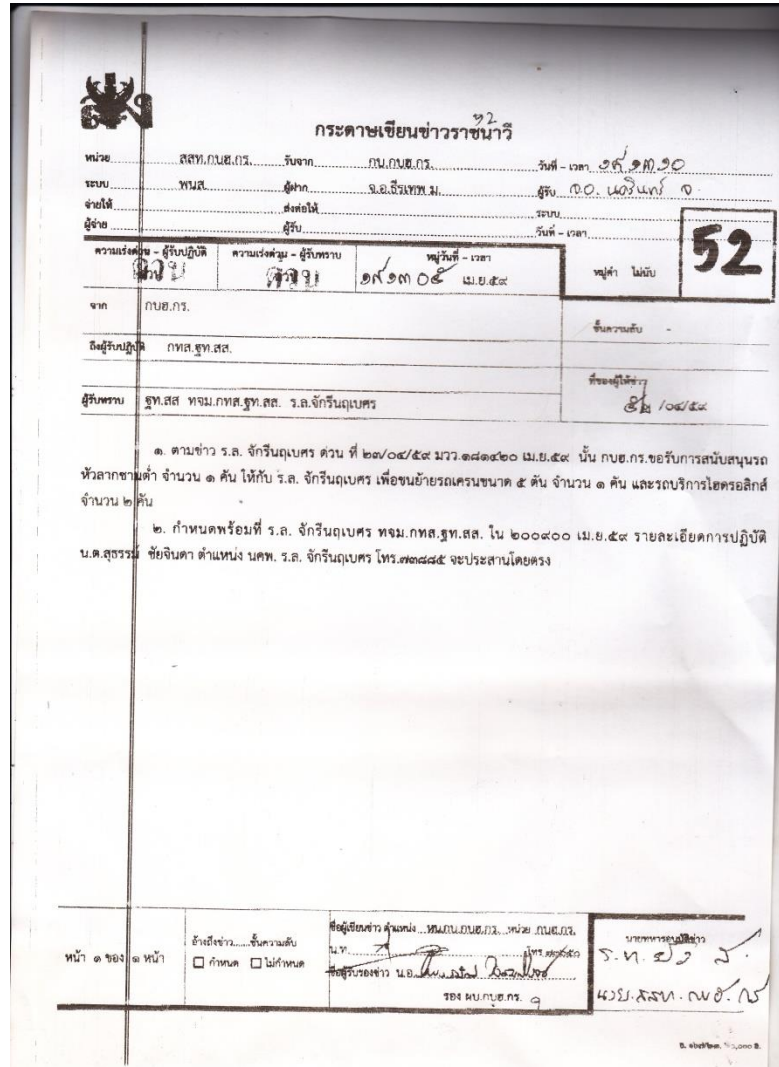 กระดาษเขียนข่าวราชนาวี
หน่วย สสท.กบฮ.กร. รับจาก กน.กบฮ.กร. วันที่ - เวลา ๑๙๑๓๑๐
ระบบ พนส. ผู้ฝาก จ.อ.ธีรเทพ ม. ผู้รับ
จ่ายให้ ส่งต่อให้ ระบบ
ผู้จ่าย ผู้รับ วันที่ - เวลา
52
ความเร่งด่วน - ผู้รับปฏิบัติ ความเร่งด่วน - ผู้รับทราบ หมู่วันที่ - เวลา
ด่วน ด่วน ๑๙๑๓๐๕ เม.ย.๕๙ หมู่คำ ไม่นับ
จาก กบฮ.กร. ชั้นความลับ -
ถึงผู้รับปฏิบัติ กทส.ฐท.สส.
ที่ของผู้ให้ข่าว
ผู้รับทราบ ฐท.สส ทจม.กทส.ฐท.สส. ร.ล.จักรีนฤเบศร /๐๔/๕๙
๑. ตามข่าว ร.ล. จักรีนฤเบศร ด่วน ที่ ๒๓/๐๔/๕๙ มวว.๑๘๑๔๒๐ เม.ย.๕๙ นั้น กบฮ.กร.ขอรับการสนับสนุนรถ
หัวลากชานต่ำ จำนวน ๑ คัน ให้กับ ร.ล. จักรีนฤเบศร เพื่อขนย้ายรถเครนขนาด ๕ ตัน จำนวน ๑ คัน และรถบริการไฮดรอลิกส์
จำนวน ๒ คัน
๒. กำหนดพร้อมที่ ร.ล. จักรีนฤเบศร ทจม.กทส.ฐท.สส. ใน ๒๐๐๙๐๐ เม.ย.๕๙ รายละเอียดการปฏิบัติ
น.ต.สุธรรม ชัยจินดา ตำแหน่ง นคพ. ร.ล. จักรีนฤเบศร โทร.๗๓๘๘๕ จะประสานโดยตรง
หน้า ๑ ของ ๑ หน้า
อ้างถึงข่าว.......ชั้นความลับ
กำหนด ไม่กำหนด
ชื่อผู้เขียนข่าว ตำแหน่ง หน.กน.กบฮ.กร. หน่วย กบฮ.กร.
น.ท. โทร
ชื่อผู้รับรองข่าว น.อ.
รอง ผบ.กบฮ.กร.
นายทหารอนุมัติข่าว